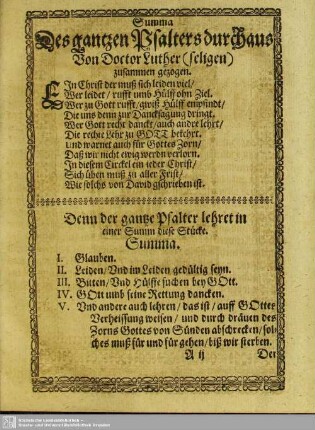 Summa
Des gantzen Psalters durchaus
Von Doctor Luther (seligen)
zusammen gezogen.
EIn Christ der muß sich leiden viel/
Wer leidet / rufft umb Hülff ohn Ziel.
Wer zu Gott rufft/ gwiß Hülff empfindt/
Die uns denn zur Dancksagung dringt.
Wer Gott recht danckt / auch andre lehrt/
Die rechte Lehr zu GOTT bekehrt.
Und warnet auch für Gottes Zorn/
Daß wir nicht ewig werdn verlorn.
In diesem Circkel ein jeder Christ/
Sich üben muß zu aller Frist/
Wie solchs von David gschrieben ist.
Denn der gantze Psalter lehret in
einer Summ diese Stücke.
Summa.
I. Glauben.
II. Leiden/ Und im Leiden gedültig seyn.
III. Bitten/ Und Hülffe suchen bey GOtt.
IV. GOtt umb seine Rettung dancken.
V. Und andere auch lehren / das ist / auff GOttes
Verheissung weisen / und durch dräuen des
Zorns Gottes von Sünden abschrecken / sol-
ches muß für und für gehen / biß wir sterben.
A ij Der